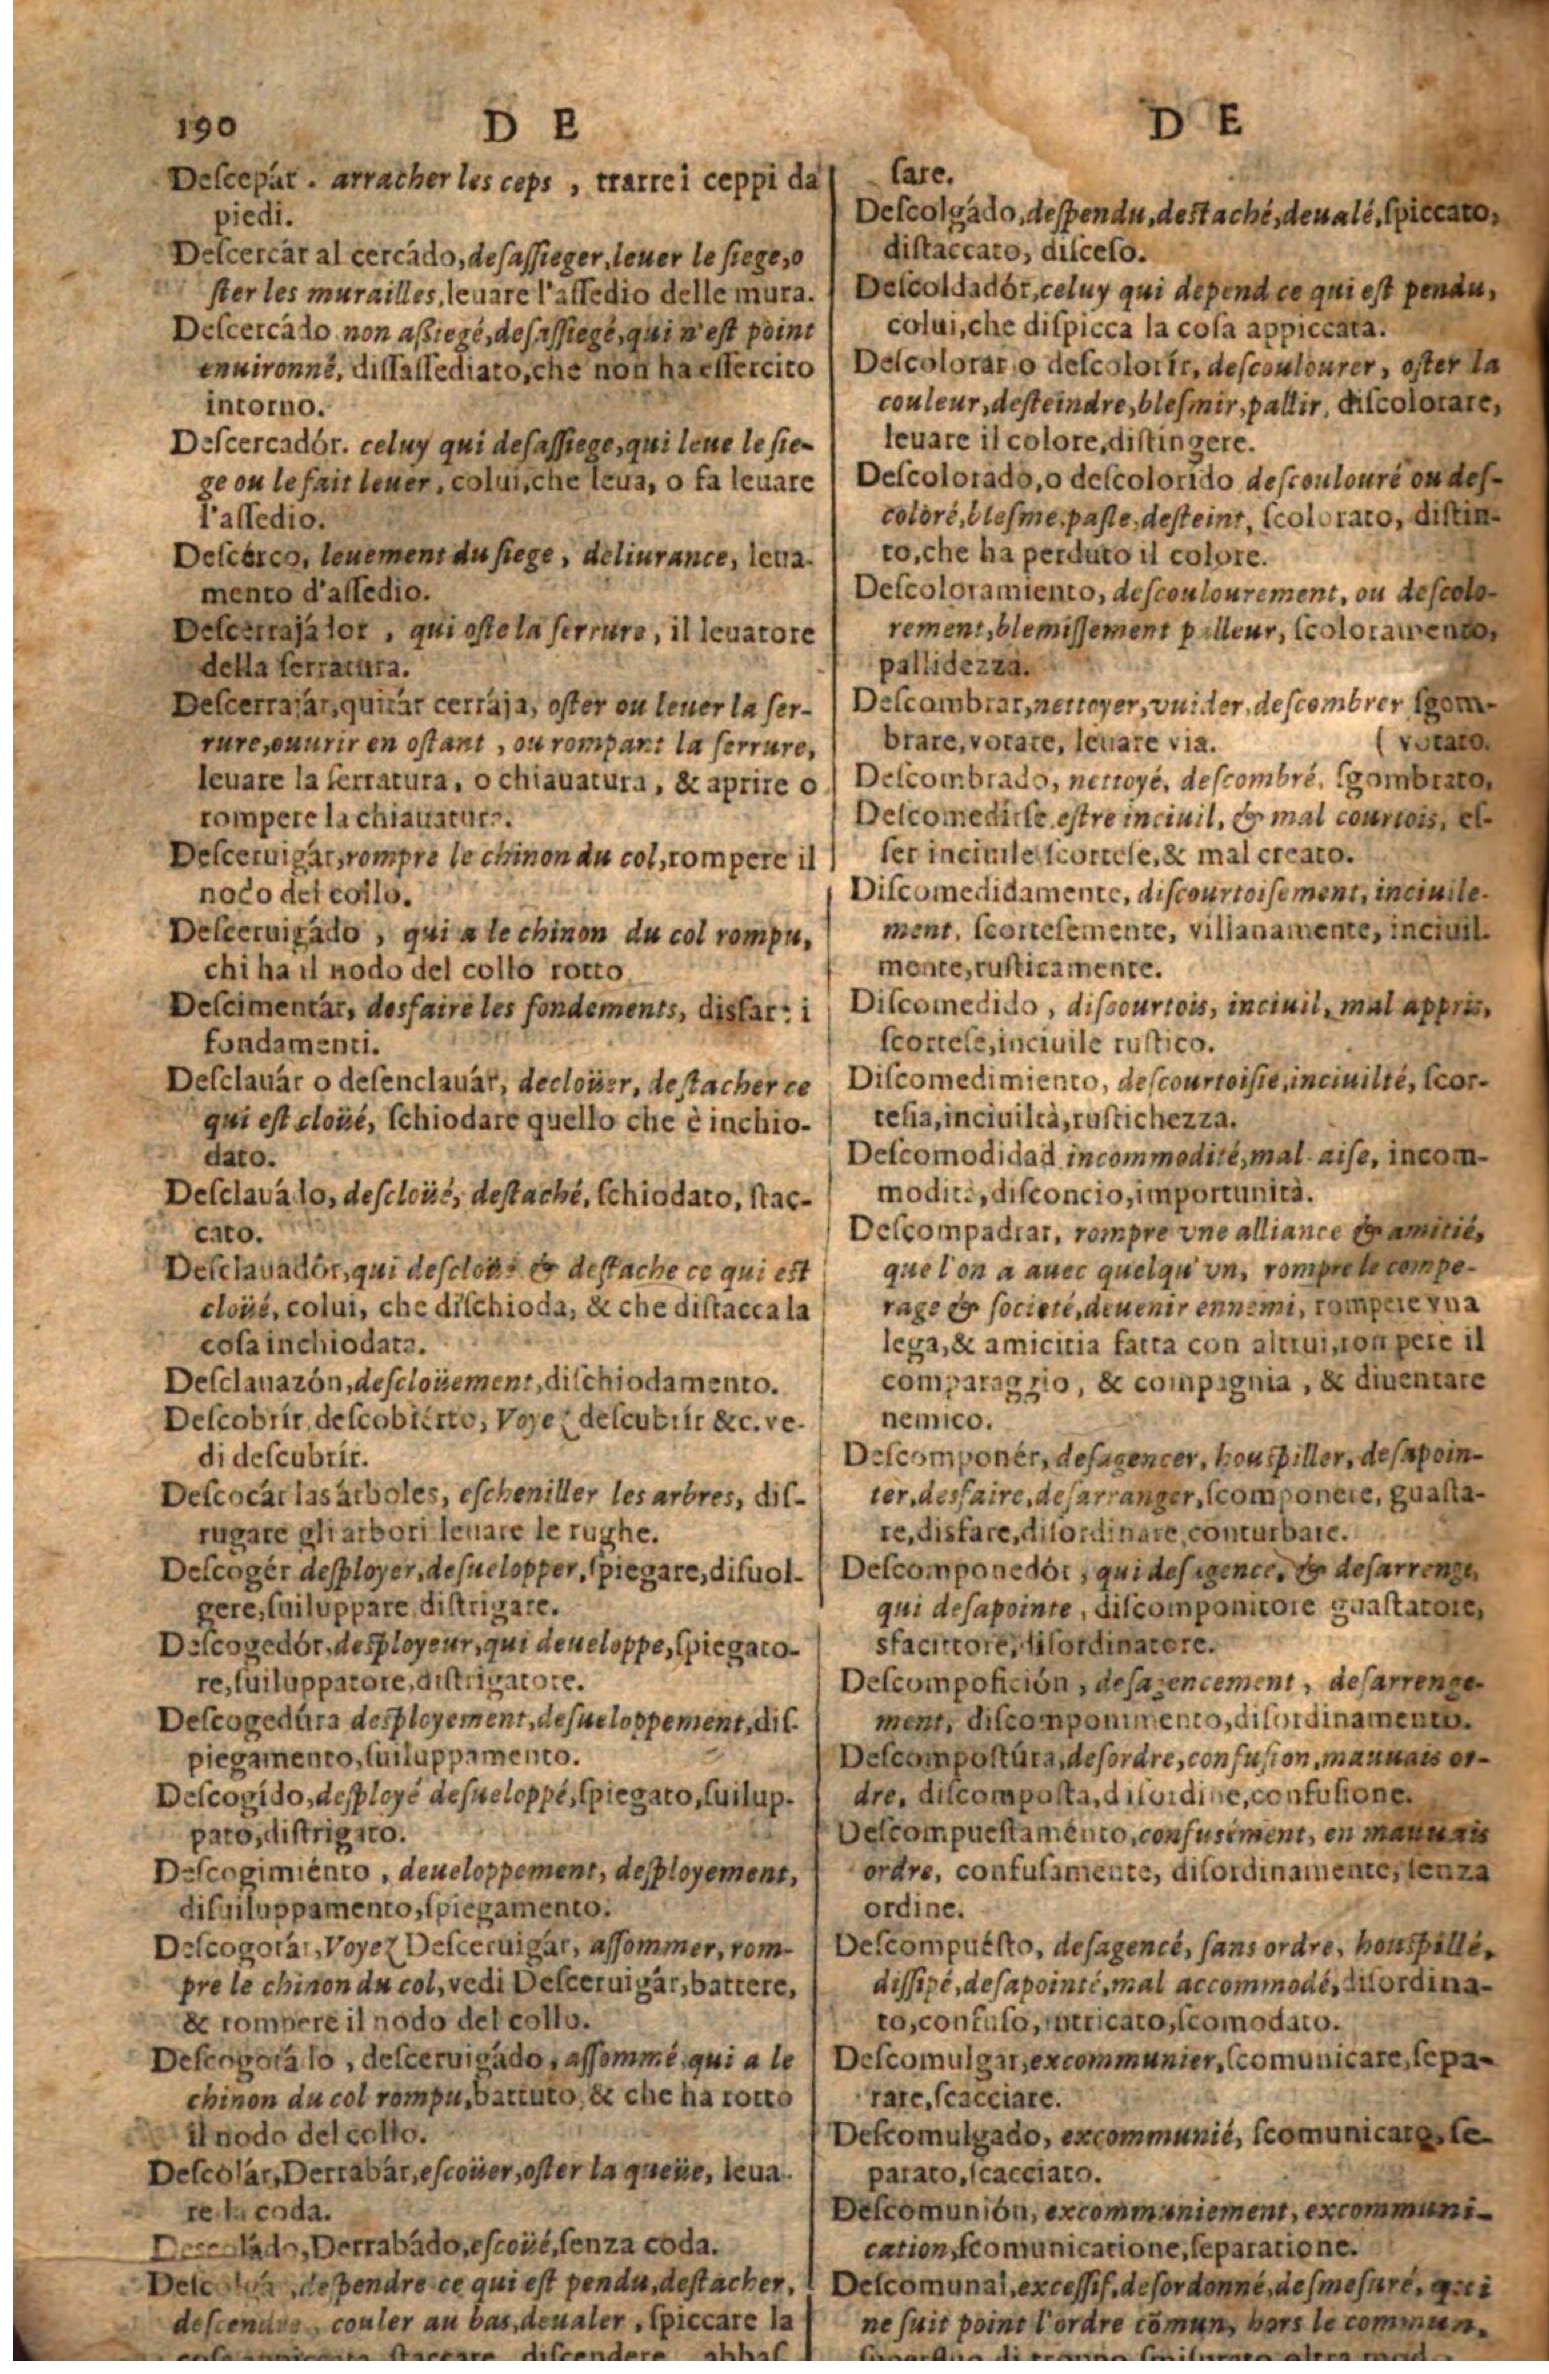 190 D E
Deſcepár. arracher les ceps, trarre i ceppi da
piedi.
Deſcercár al cercádo, deſaſſieger, leuer le ſiege, o
ſter les murailles, leuare l'aſſedio delle mura.
Deſcercádo non aſsiegé, deſaſſiegé, qui n'eſt point
enuironné, diſſaſſediato, che non ha eſſercito
intorno.
Deſcercadór. celuy qui deſaſſiege, qui leue le ſie-
ge ou le fait leuer, colui, che leua, o fa leuare
l'aſſedio.
Deſcérco, leuement du ſiege, deliurance, leua-
mento d'aſſedio.
qui oſte la ſerrure, il leuatore
della ſerratura.
Deſcerrajár, quitár cerrája, oſter ou leuer la ſer-
rure, ouurir en oſtant, ou rompant la ſerrure,
leuare la ſerratura, o chiauatura, & aprire o
rompere la chiauatura.
Deſceruigár, rompre le chinon du col, rompere il
nodo del collo.
Deſceruigádo, qui a le chinon du col rompu,
chi ha il nodo del collo rotto
Deſcimentár, desfaire les fondements, disfare i
fondamenti.
Deſclauár o deſenclauár, decloüer, deſtacher ce
qui eſt cloüé, ſchiodare quello che è inchio-
dato.
Deſclavádo, deſcloüé, deſtaché, ſchiodato, ſtac-
cato.
Deſclauadór, qui deſcloüe & deſtache ce qui eſt
cloüé, colui, che diſchioda, & che diſtacca la
coſa inchiodata.
Deſclauazón, deſcloüement, diſchiodamento.
Deſcobrír, deſcobiérto, Voyez deſcubrír &c. ve-
di deſcubrír.
Deſcocár las árboles, eſcheniller les arbres, diſ-
rugare gli arbori leuare le rughe.
Deſcogér deſployer, deſuelopper, ſpiegare, diſuol-
gere, ſuiluppare, diſtrigare.
Deſcogedór, deſployeur, qui deueloppe, ſpiegato-
re, ſuiluppatore, diſtrigatore.
Deſcogedúra deſployement, deſueloppement, diſ-
piegamento, ſuiluppamento.
Deſcogído, deſployé deſueloppé, ſpiegato, ſuilup-
pato, diſtrigato.
Deſcogimiénto, deueloppement, deſployement,
diſuiluppamento, ſpiegamento.
Deſcogotár, Voyez Deſceruigár, aſſommer, rom-
pre le chinon du col, vedi Deſceruigár, battere,
& rompere il nodo del collo.
Deſcogotádo, deſceruigádo, aſſommé, qui a le
chinon du col rompu, battuto, & che ha rotto
il nodo del collo.
Deſcolár, Derrabár, eſcoüer, oſter la queüe, leua-
re la coda.
Deſcoládo, Derrabádo, eſcoüé, ſenza coda.
deſpendre ce qui eſt pendu, deſtacher,
deſcendre, couler au bas, deualer, ſpiccare la
D E
ſare.
Deſcolgádo, deſpendu, deſtaché, deualé, ſpiccato,
diſtaccato, diſceſo.
Deſcoldadór, celuy qui depend ce qui eſt pendu,
colui, che diſpicca la coſa appiccata.
Deſcolorar o deſcolorír, deſcoulourer, oſter la
couleur, deſteindre, bleſmir, pallir, diſcolorare,
leuare il colore, diſtingere.
Deſcolorado, o deſcolorido deſcoulouré ou deſ-
coloré, bleſme, paſle, deſteint, ſcolorato, diſtin-
to, che ha perduto il colore.
Deſcoloramiento, deſcoulourement, ou deſcolo-
rement, blemiſſement palleur, ſcoloramento,
pallidezza.
Deſcombrar, nettoyer, vuider, deſcombrer ſgom-
brare, votare, leuare via. ( votato.
Deſcombrado, nettoyé, deſcombré, ſgombrato,
Deſcomedirſe eſtre inciuil, & mal courtois, eſ-
ſer inciuile ſcorteſe, & mal creato.
Diſcomedidamente, diſcourtoiſement, inciuile-
ment, ſcorteſemente, villanamente, inciuil-
mente, ruſticamente.
Diſcomedido, diſcourtois, inciuil, mal appris,
ſcorteſe, inciuile ruſtico.
Diſcomedimiento, deſcourtoiſie, inciuilté, ſcor-
teſia, inciuiltà, ruſtichezza.
Deſcomodidad incommodité, mal aiſe, incom-
modità, diſconcio, importunità.
Deſcompadrar, rompre vne alliance & amitié,
que l'on a auec quelqu'vn, rompre le compe-
rage & societé, deuenir ennemi, rompere vna
lega, & amicitia fatta con altrui, rompere il
comparaggio, & compagnia, & diuentare
nemico.
Deſcomponér, deſagencer, houſpiller, deſapoin-
ter, desfaire, deſarranger, ſcomponere, guaſta-
re, disfare, diſordinare, conturbare.
Deſcomponedór, qui deſagence, & deſarrenge,
qui deſapointe, diſcomponitore guaſtatore,
sfacittore, diſordinatore.
Deſcompoſición, deſagencement, deſarrenge-
ment, diſcomponimento, diſordinamento.
Deſcompoſtúra, deſordre, confuſion, mauuais or-
dre, diſcompoſta, diſordine, confuſione.
Deſcompueſtaménto, confuſément, en mauuais
ordre, confuſamente, diſordinamente, ſenza
ordine.
Deſcompuéſto, deſagencé, ſans ordre, houſpillé,
diſſipé, deſapointé, mal accommodé, diſordina-
to, confuſo, intricato, ſcomodato.
Deſcomulgar, excommunier, ſcomunicare, ſepa-
rare, ſcacciare.
Deſcomulgado, excommunié, ſcomunicato, ſe-
parato, ſcacciato.
Deſcomunión, excommuniement, excommuni-
cation, ſcomunicatione, ſeparatione.
Deſcomunal, exceſſif, deſordonné, deſmeſuré, qui
ne ſuit point l'ordre cõmun, hors le commun,